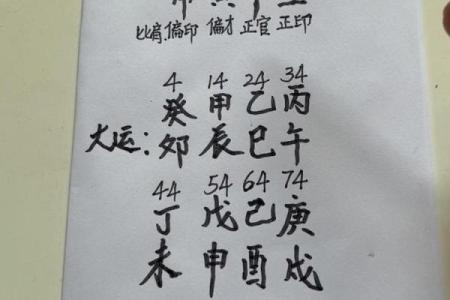 比肩.偏印 偏才 正官 正印
4 14 24 34
癸 甲 乙 丙
大运: 卯 辰 巳 午
44 54 64 74
丁 戊 己 庚
未 申 酉 戌